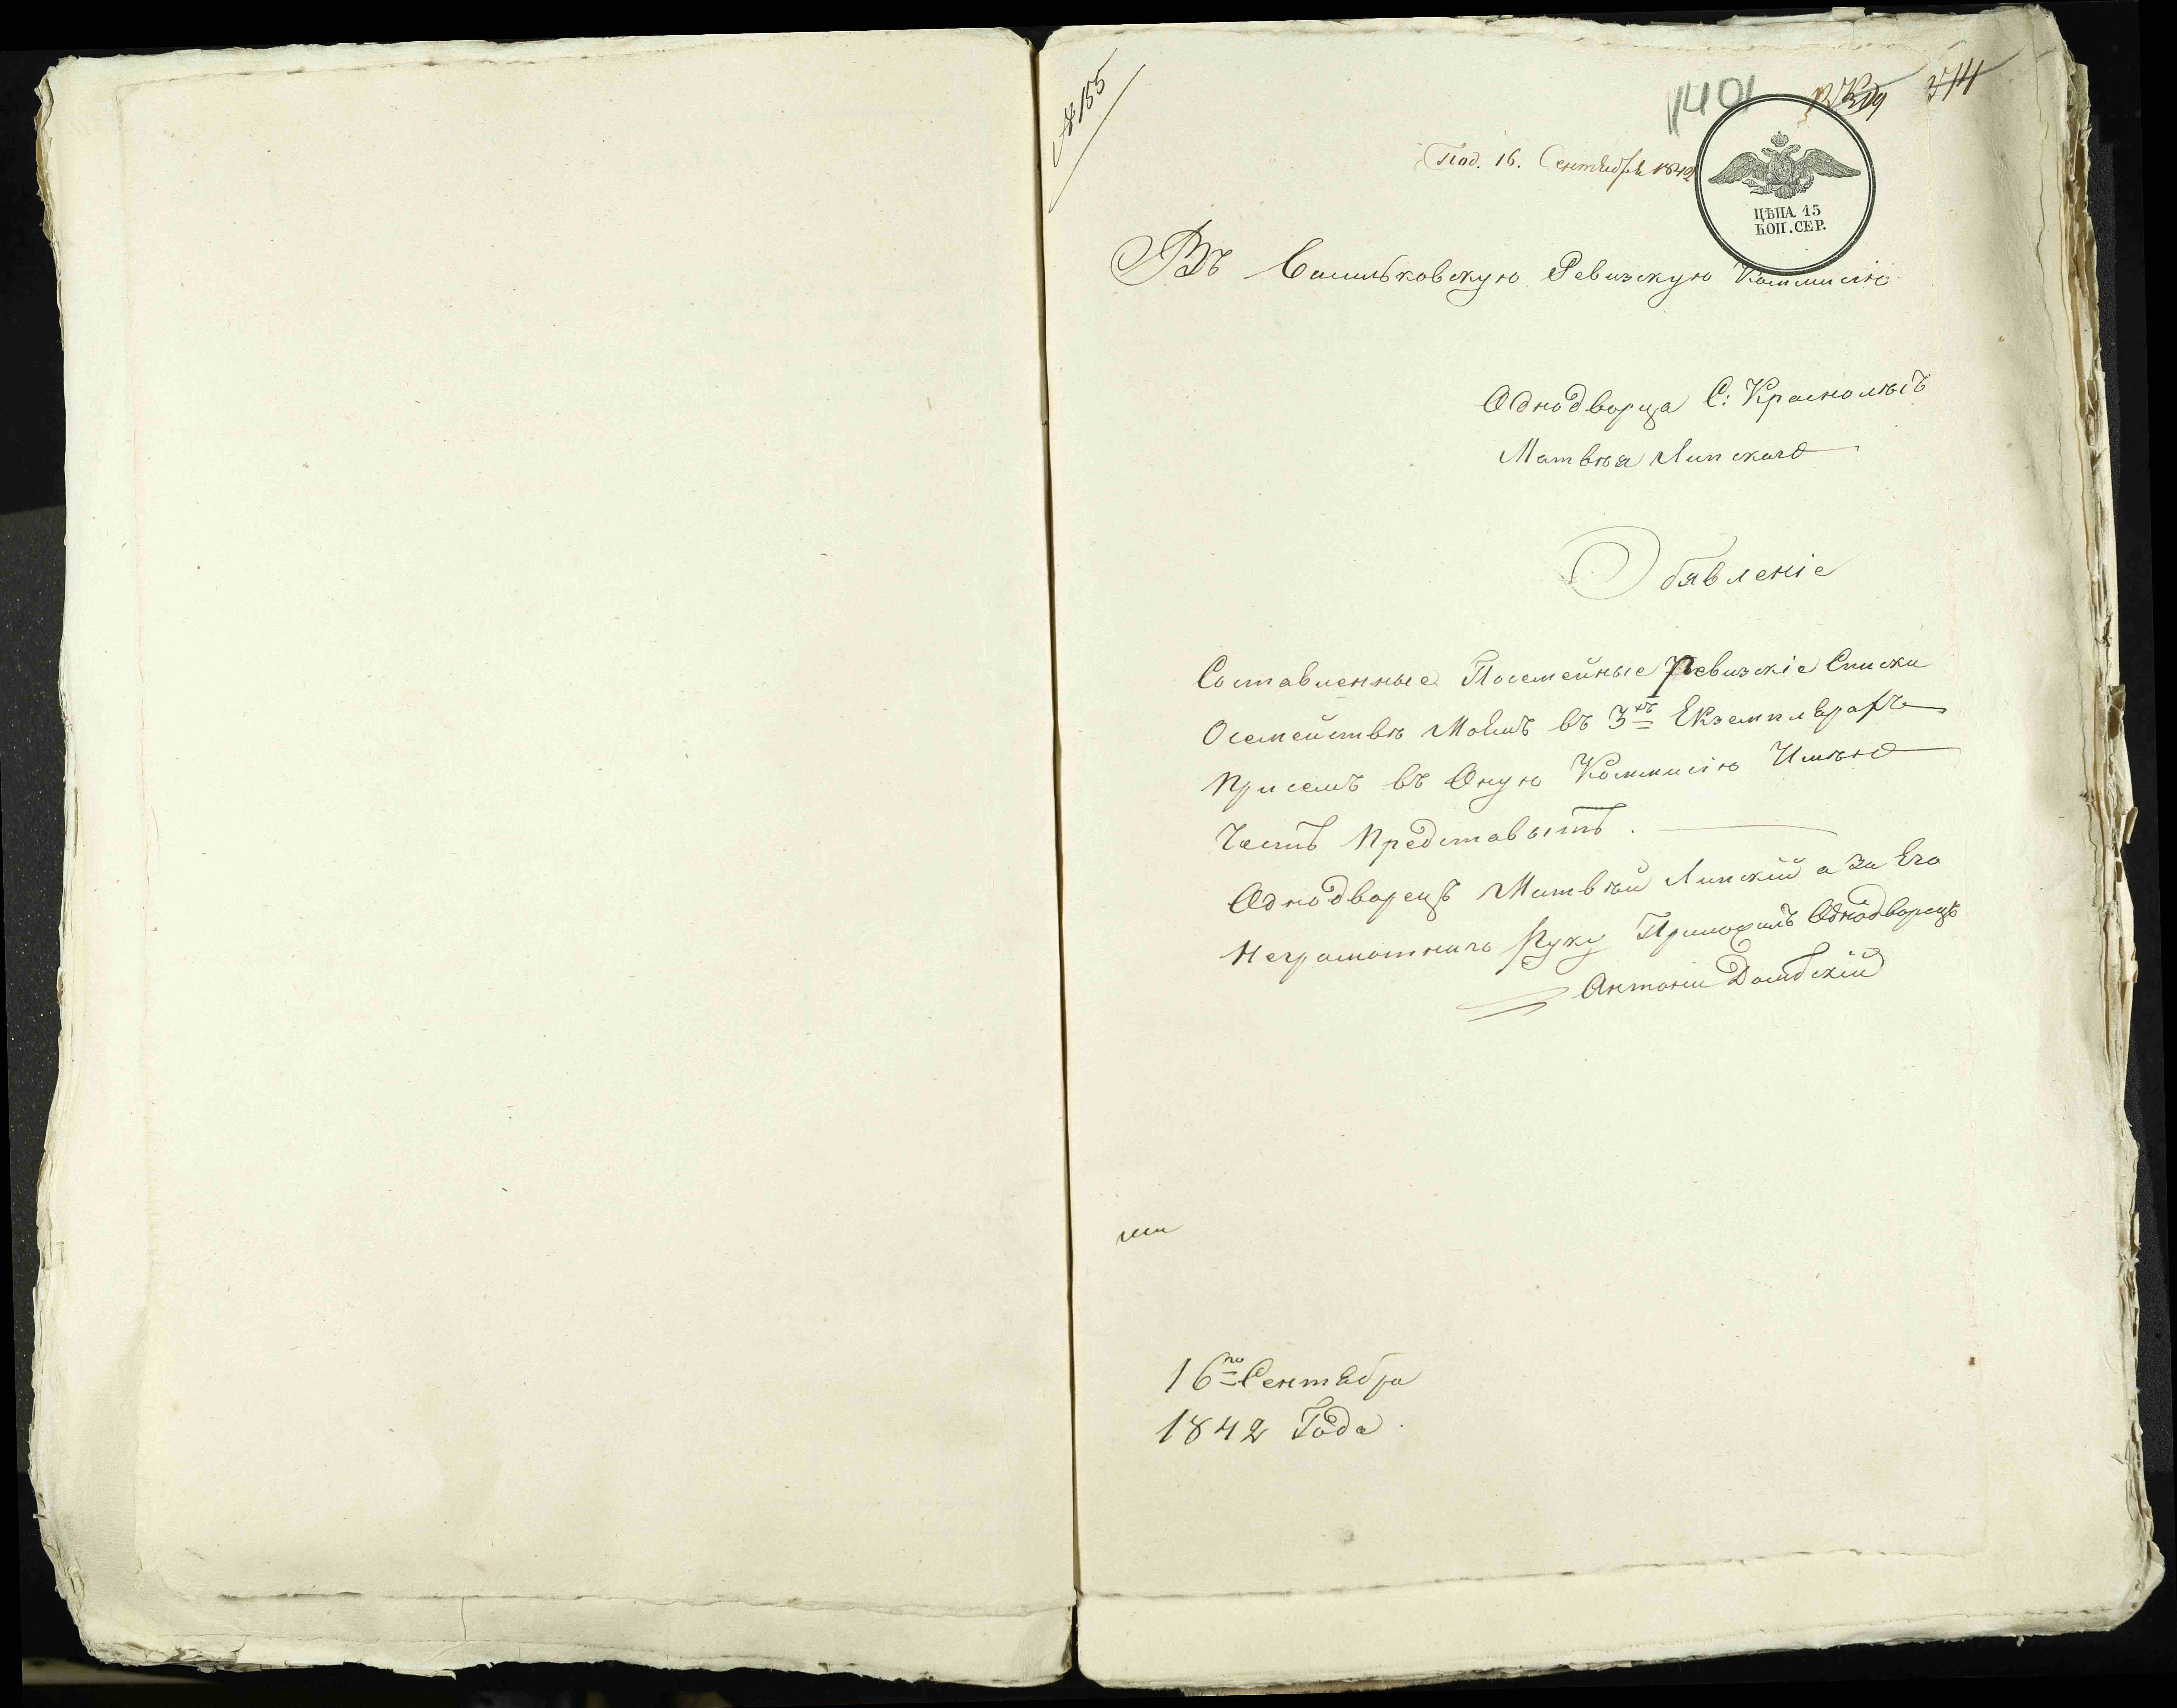 № 155
1401
514
Под. 16. Сентября 1842
ЦѢНА 15
КОП. СЕР.
Въ Васильковскую Ревизкую Коммисію
Однодворца С: Краснолѣсъ
Матвѣя Липскаго
Обявленіе
Составленные Посемейные Ревизскіе Списки
Осемействѣ Моемъ въ 3хъ Екземплярахъ
Присемъ въ Оную Коммисію Имѣю
Честь Представыть.
Однодворецъ Матвѣй Липскій а За Его
Неграмотнаго Руку Приложилъ Однодворецъ
Антони Домбскій
16го Сентября
1842 Года.